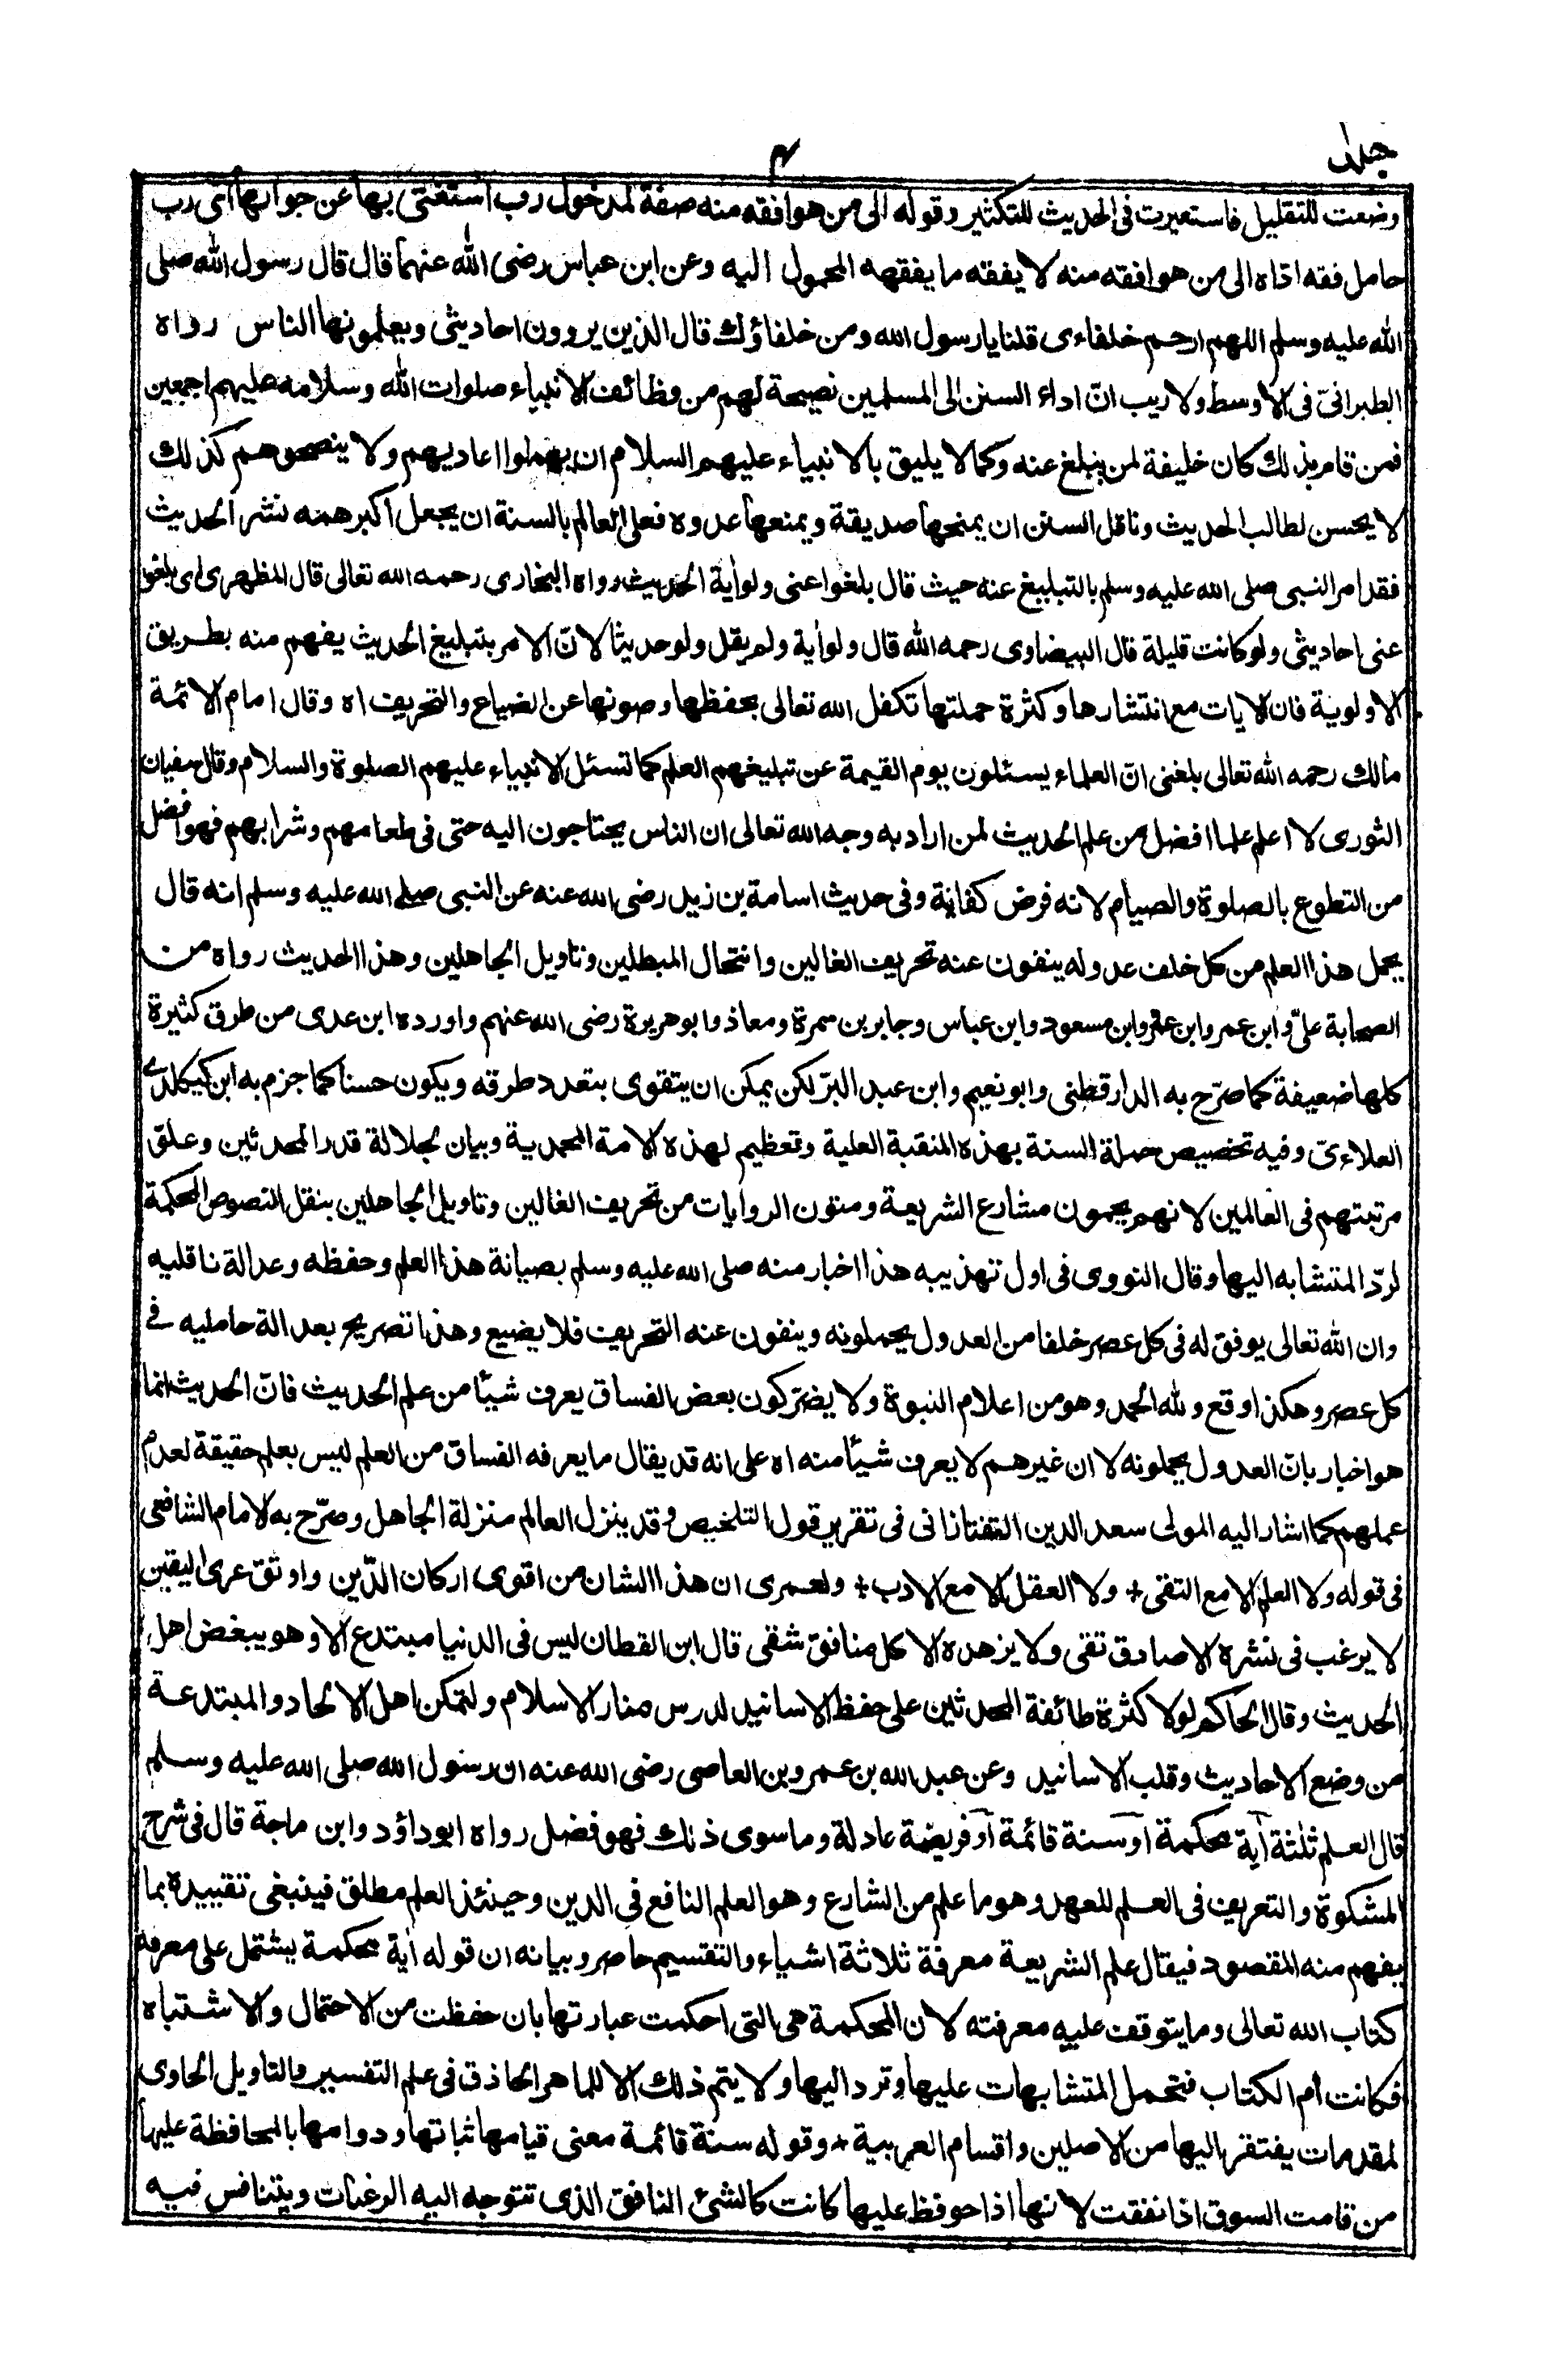 جلد
٣
وضعت للتقليل فاستعيرت فى الحديث للتكثير وقوله الى من هو افقه منه صفة لمدخول رب استغنى بها عن جوابها اى رب
حامل فقه اداه الى من هو افقه منه لا يفقه ما يفقهه المحمول اليه وعن ابن عباس رضى الله عنهما قال قال رسول الله صلى
الله عليه وسلم اللهم ارحم خلفاءى قلنا يا رسول الله ومن خلفاؤك قال الذين يروون احاديثى ويعلمونها الناس رواه
الطبرانىّ فى الاوسط ولا ريب انّ اداء السنن الى المسلمين نصيحة لهم من وظائف الانبياء صلوات الله وسلامه عليهم اجمعين
فمن قام بذلك كان خليفة لمن يبلغ عنه وكما لا يليق بالانبياء عليهم السلام ان يهملوا اعاديهم ولا ينصحوهم كذلك
لا يحسن لطالب الحديث وناقل السنن ان يمنحها صديقة ويمنعها عدوه فعلى العالم بالسنة ان يجعل اكبر همه نشر الحديث
فقد امر النبى صلى الله عليه وسلم بالتبليغ عنه حيث قال بلغوا عنى ولو أية الحديث رواه البخارى رحمه الله تعالى قال المظهرى اى بلغوا
عنى احاديثى ولو كانت قليلة قال البيضاوى رحمه الله قال ولو أية ولم يقل ولو حديثا لانّ الامر بتبليغ الحديث يفهم منه بطريق
الاولوية فان الايات مع انتشارها وكثرة حملتها تكفل الله تعالى بحفظها وصونها عن الضياع والتحريف اه وقال امام الائمة
مالك رحمه الله تعالى بلغنى انّ العلماء يسئلون يوم القيمة عن تبليغهم العلم كما تسئل الانبياء عليهم الصلوة والسلام وقال سفيان
الثورى لا اعلم علما افضل من علم الحديث لمن اراد به وجه الله تعالى ان الناس يحتاجون اليه حتى فى طعامهم وشرابهم فهو افضل
من التطوع بالصلوة والصيام لانه فرض كفاية وفى حديث اسامة بن زيد رضى الله عنه عن النبى صلى الله عليه وسلم انه قال
يحمل هذا العلم من كل خلف عدوله ينفون عنه تحريف الغالين وانتحال المبطلين وتاويل الجاهلين وهذا الحديث رواه من
الصحابة علىّ وابن عمر وابن عمرو وابن مسعود وابن عباس وجابر بن سمرة ومعاذ وابو هريرة رضى الله عنهم واورده ابن عدى من طرق كثيرة
كلها ضعيفة كما صرّح به الدارقطنى وابو نعيم وابن عبد البرّ لكن يمكن ان يتقوى بتعدد طرقه ويكون حسنا كما جزم به ابن كيكلدے
العلاءىّ وفيه تخصيص حملة السنة بهذه المنقبة العلية وتعظيم لهذه الامة المحمدية وبيان لجلالة قدر المحدثين وعلوّ
مرتبتهم فى العالمين لانهم يحمون مشارع الشريعة ومتون الروايات من تحريف الغالين وتاويل الجاهلين بنقل النصوص المحكمة
لردّ المتشابه اليها وقال النووى فى اول تهذيبه هذا اخبار منه صلى الله عليه وسلم بصيانة هذا العلم وحفظه وعدالة ناقليه
وان الله تعالى يوفق له فى كل عصر خلفا من العدول يحملونه وينفون عنه التحريف فلا يضيع وهذا تصريح بعدالة حامليه فے
كل عصر وهكذا وقع ولله الحمد وهو من اعلام النبوة ولا يضرّ كون بعض الفساق يعرف شيئا من علم الحديث فانّ الحديث انما
هو اخبار بانّ العدول يحملونه لا ان غيرهم لا يعرف شيئا منه اه على انه قد يقال ما يعرفه الفساق من العلم ليس بعلم حقيقة لعدم
عملهم كما اشار اليه المولى سعد الدين التفتازانى فى تقرير قول التلخيص وقد ينزل العالم منزلة الجاهل وصرّح به الامام الشافعى
فى قوله ولا العلم الا مع التقى + ولا العقل الا مع الادب + ولعمرى ان هذا الشان من اقوى اركان الدّين واوثق عرى اليقين
لا يرغب فى نشره الا صادق تقى ولا يزهده الا كل منافق شقى قال ابن القطان ليس فى الدنيا مبتدع الا وهو يبغض اهل
الحديث وقال الحاكم لولا كثرة طائفة المحدثين على حفظ الاسانيد لدرس منار الاسلام ولتمكن اهل الالحاد والمبتدعة
من وضع الاحاديث وقلب الاسانيد وعن عبد الله بن عمرو بن العاصى رضى الله عنه ان رسول الله صلى الله عليه وسلم
قال العلم ثلثة آية محكمة او سنة قائمة او فريضة عادلة وما سوى ذلك فهو فضل رواه ابو داؤد وابن ماجة قال فى شرح
المشكوة والتعريف فى العلم للعهد وهو ما علم من الشارع وهو العلم النافع فى الدين وحينئذ العلم مطلق فينبغى تقييده بما
يفهم منه المقصود فيقال علم الشريعة معرفة ثلاثة اشياء والتقسيم حاصر وبيانه ان قوله أية محكمة يشتمل على معرفة
كتاب الله تعالى وما يتوقف عليه معرفته لان المحكمة هى التى احكمت عبارتها بان حفظت من الاحتمال والاشتباه
فكانت أم الكتاب فتحمل المتشابهات عليها وترد اليها ولا يتم ذلك الا للماهر الحاذق فى علم التفسير والتاويل الحاوى
لمقدمات يفتقر اليها من الاصلين واقسام العربية + وقوله سنة قائمة معنى قيامها ثباتها ودوامها بالمحافظة عليها
من قامت السوق اذا نفقت لانها اذا حوفظ عليها كانت كالشئ النافق الذى تتوجه اليه الرغبات ويتنافس فيه